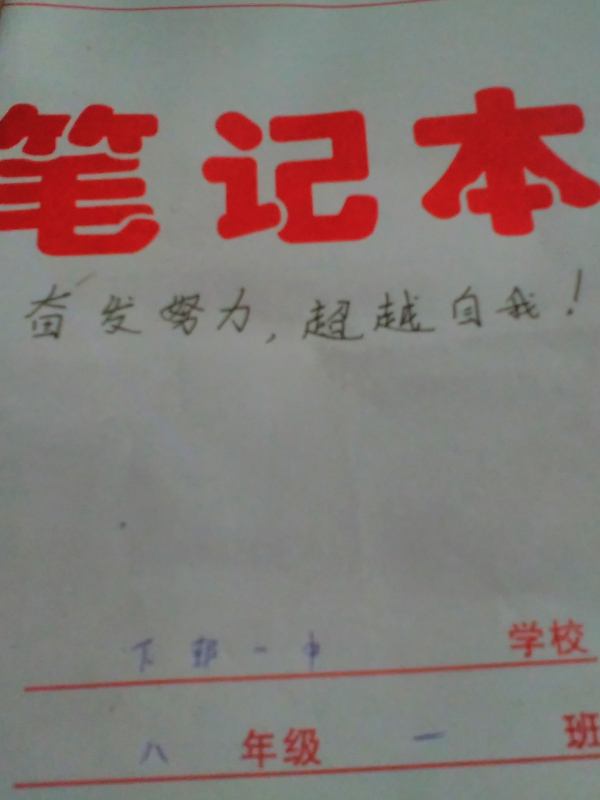 笔记本
奋发努力,超越自我!
下邽一中 学校
八 年级 一 班